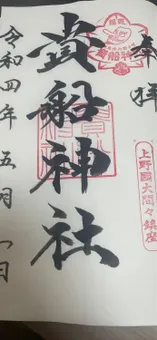 奉拝
貴船神社
上野國大間々鎮座
令和四年五月一日